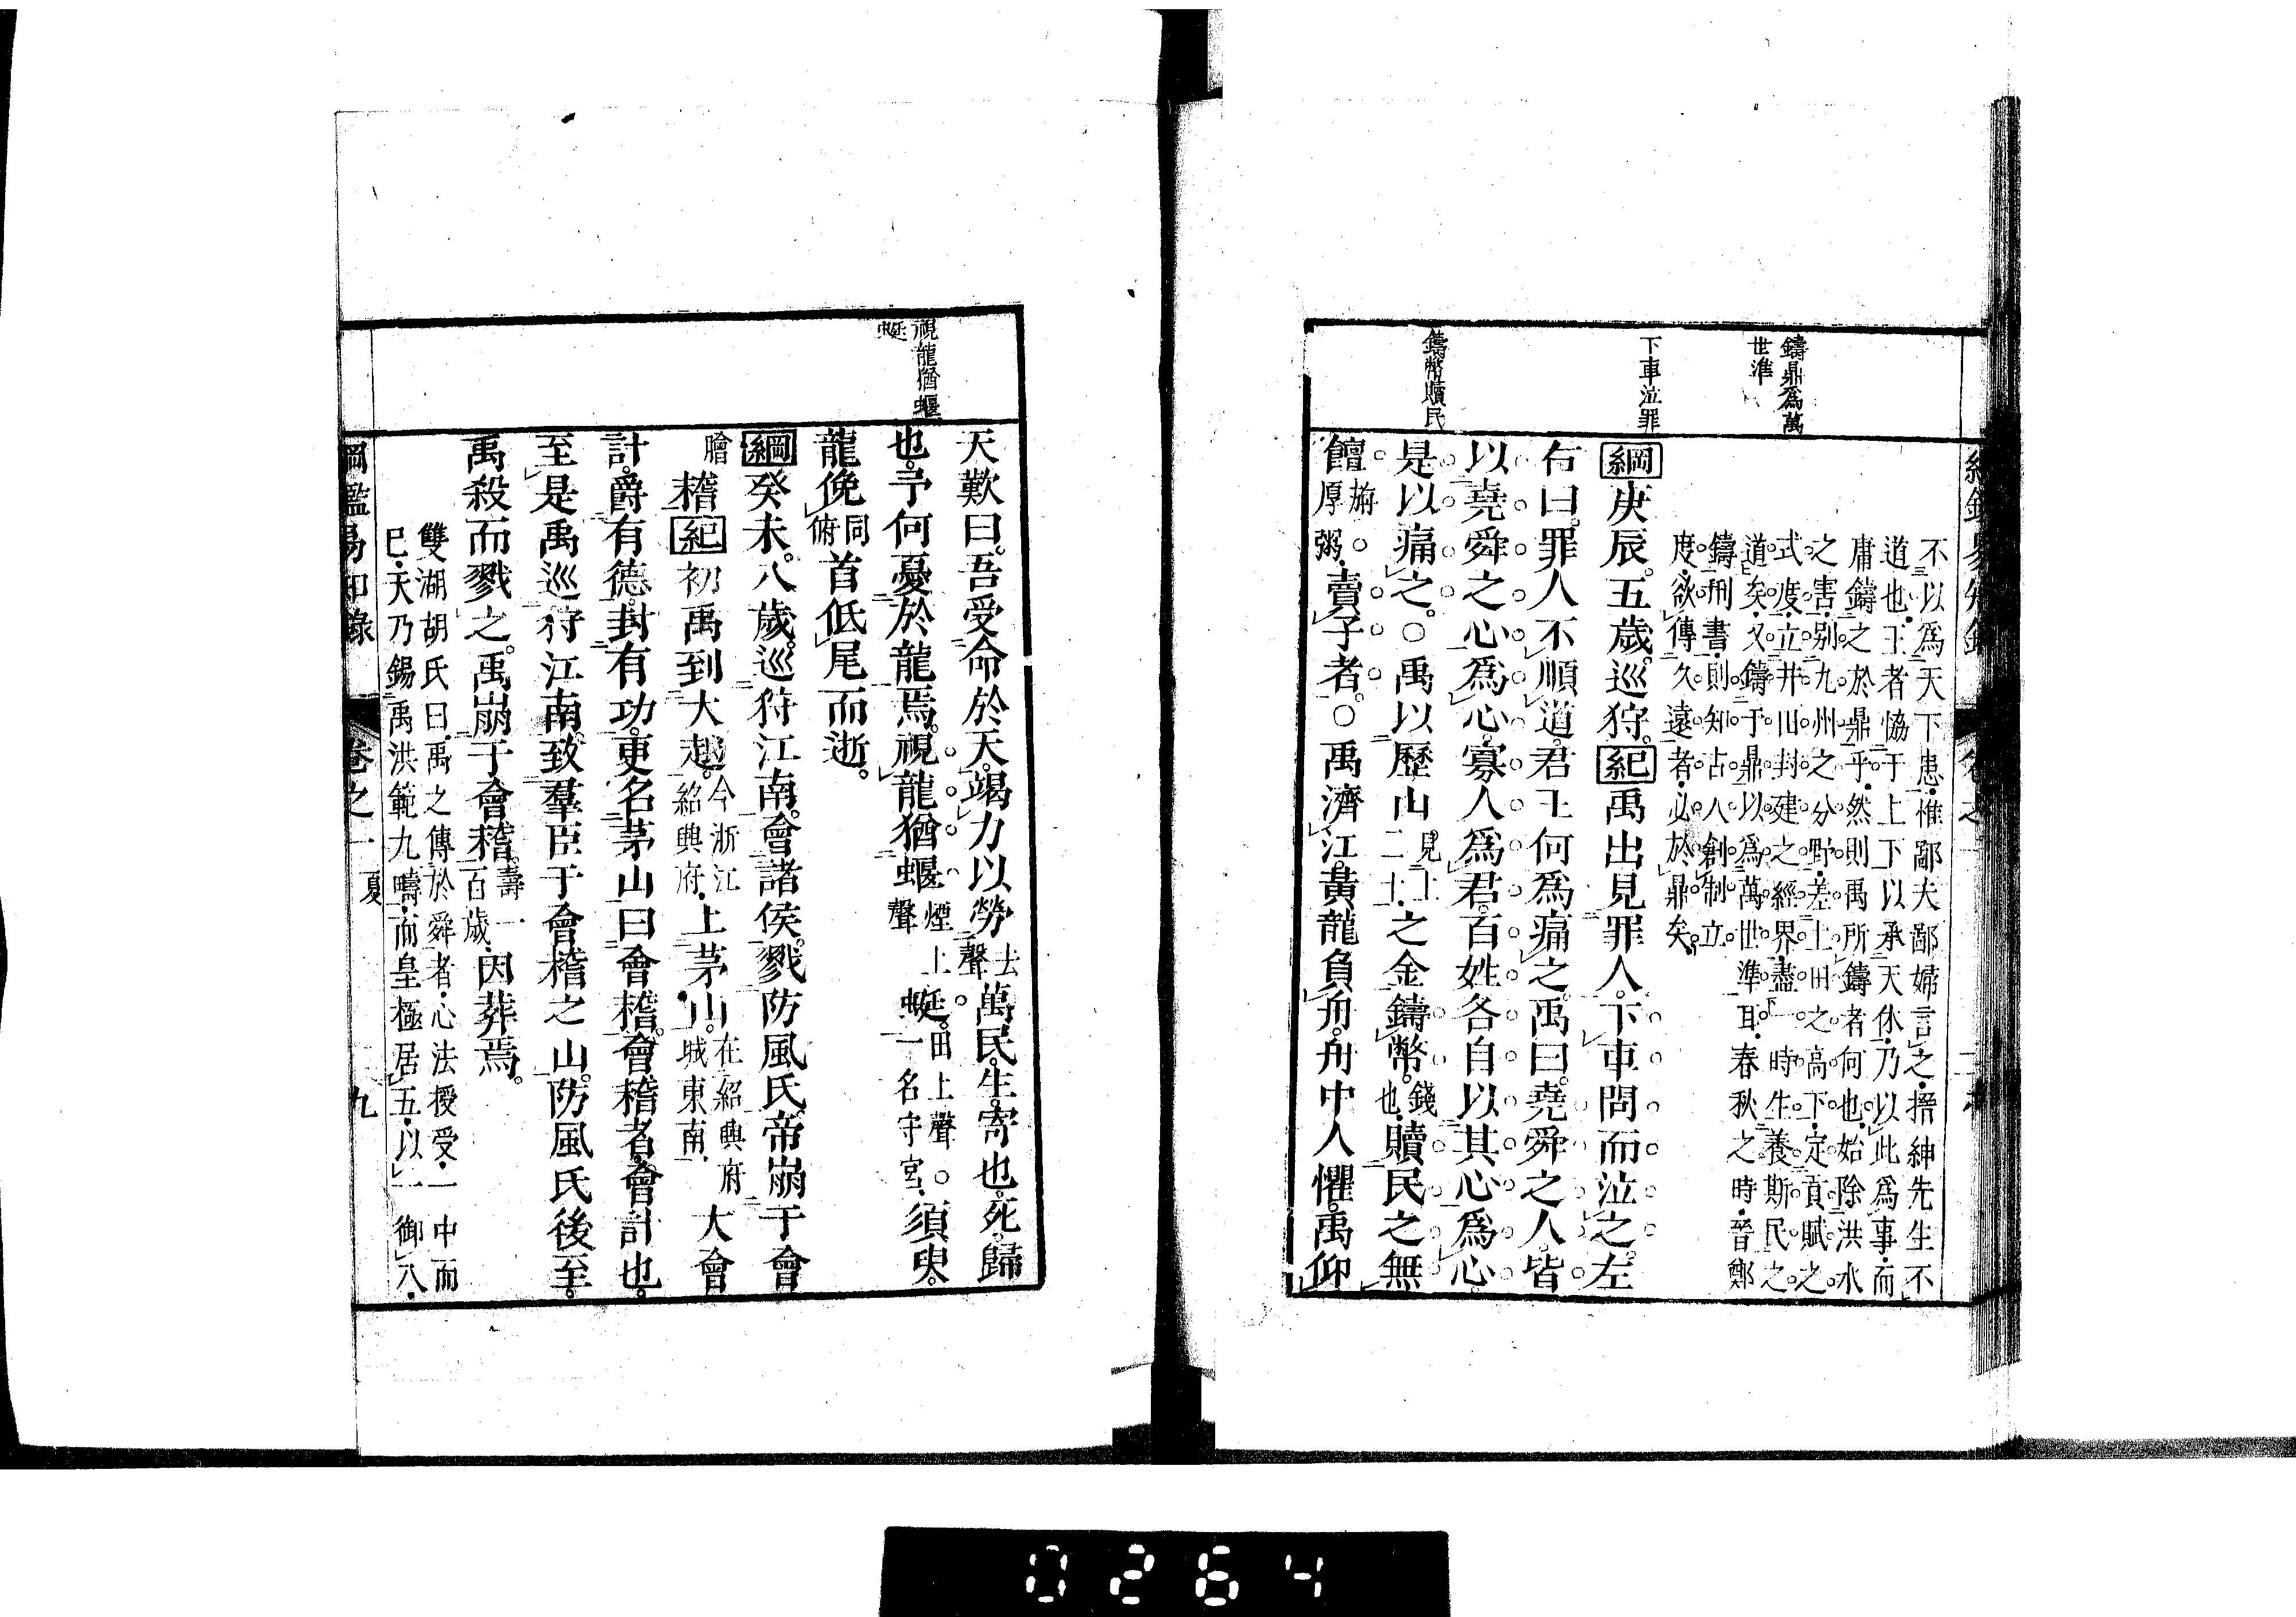 鑄鼎爲萬
世準
下車泣罪
鑄幣贖民
不以爲天下患惟鄙夫鄙婦言之搢紳先生不
道也王者恊于上下以承天休乃以此爲事而
庸鑄之於鼎乎然則禹所鑄者何也始除洪水
之害别九州之分野差土田之高下定貢賦之
式度立井田封建之經界盡一時生養斯民之
道矣又鑄于鼎以爲萬世準耳春秋之時晉鄭
鑄刑書則知古人創制立
度欲傳久遠者必於鼎矣
綱庚辰五歲巡狩紀禹出見罪人下車問而泣之左
右曰罪人不順道君王何爲痛之禹曰堯舜之人皆
以堯舜之心爲心寡人爲君百姓各自以其心爲心
是以痛之○禹以歷山見上二十之金鑄幣錢也贖民之無
饘旃厚粥賣子者○禹濟江黃龍負舟舟中人懼禹仰
視龍猶蝘
蜓
天歎曰吾受命於天竭力以勞去聲萬民生寄也死歸
也予何憂於龍焉視龍猶蝘煙上聲蜓田上聲○蝘蜓一名守宮須臾
龍俛同俯首低尾而逝
綱癸未八歲巡狩江南會諸侯戮防風氏帝崩于會
膾稽紀初禹到大越今浙江紹興府上茅山在紹興府城東南大會
計爵有德封有功更名茅山曰會稽會稽者會計也
至是禹巡狩江南致羣臣于會稽之山防風氏後至
禹殺而戮之禹崩于會稽壽一百歲因葬焉
雙湖胡氏曰禹之傳於舜者心法授受一中而
已天乃錫禹洪範九疇而皇極居五以一御八
綱鑑易知錄 卷之一 夏 九
0264